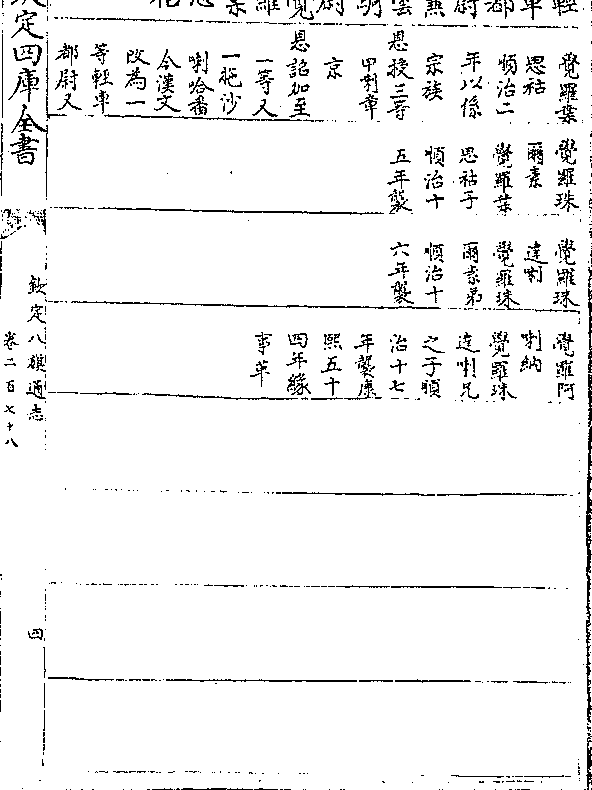 覺羅葉
思祜
順治二
年以係
宗族
恩授三等
甲喇章
京
恩詔加至
一等又
一拖沙
喇哈番
今漢文
改為一
等輕車
都尉又
覺羅珠
爾素
覺羅葉
思祜子
順治十
五年襲
覺羅珠
達喇
覺羅珠
爾素弟
順治十
六年襲
覺羅阿
喇納
覺羅珠
達喇兄
之子順
治十七
年襲康
熙五十
四年緣
事革
定四庫全書
欽定八旗通志
卷二百七十八
四